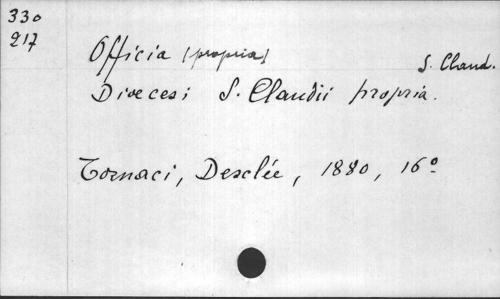 330
217
Officia (propria)
S. Claud.
Dioecesi S. Claudii propria.
Tornaci, Desclée, 1880, 16º